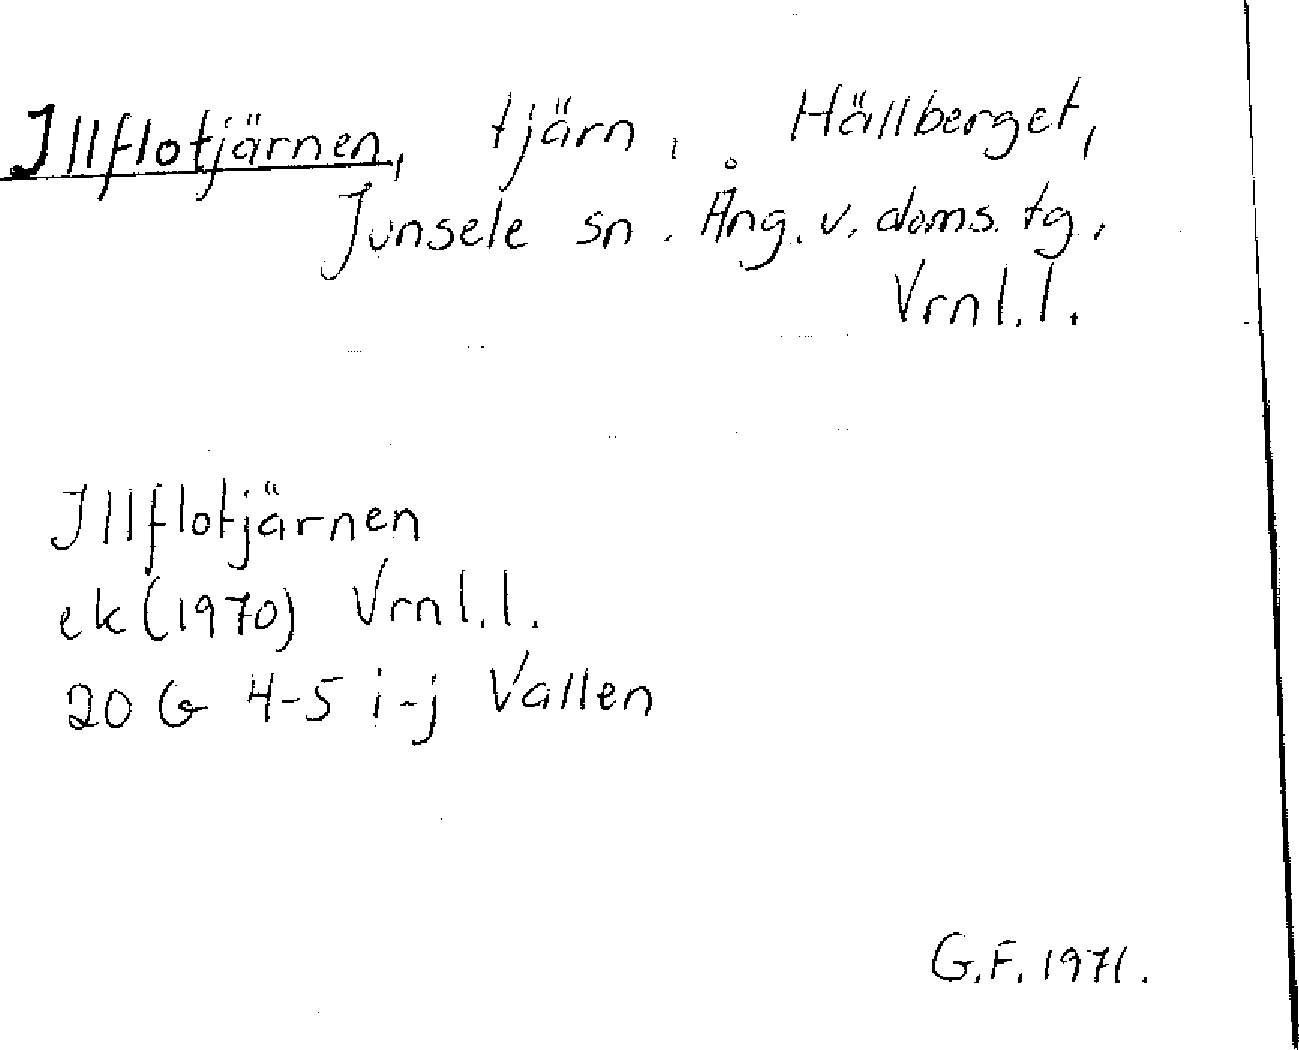 Illflotjärnen, tjärn, Hällberget,
Junsele sn. Ång. v. doms. tg,
Vrnl.l.
Illflotjärnen
ek (1970) Vrnl.l.
20 G 4-5 i-j Vallen
G.F. 1971.